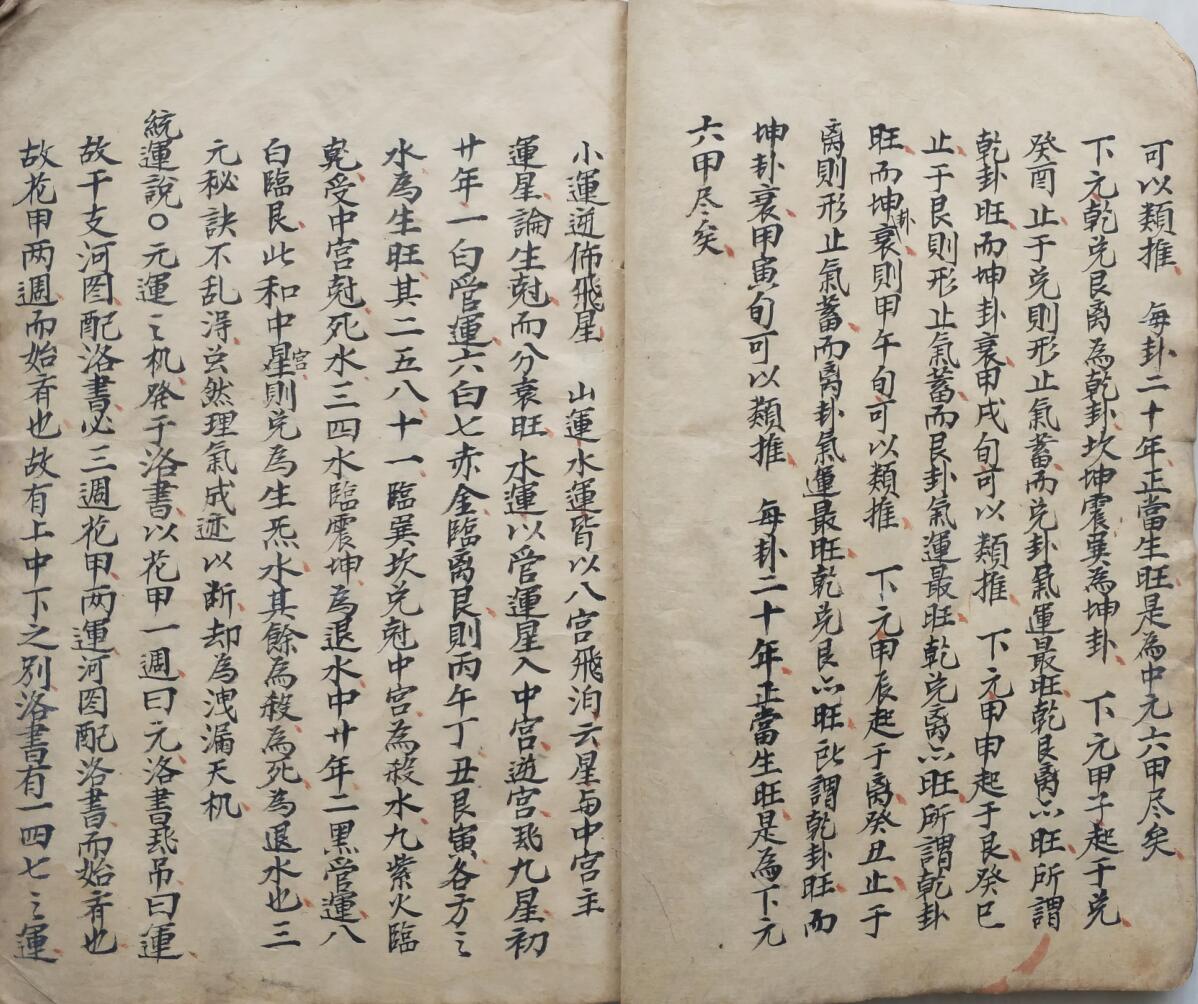 可以類推　每卦二十年正當生旺是為中元六甲尽矣
下元乾兌艮離為乾卦坎坤震巽為坤卦　下元甲子起于兌
癸酉止于兌則形止氣蓄而兌卦氣運最旺乾艮离亦旺所謂
乾卦旺而坤卦衰甲戌旬可以類推　下元甲申起于艮癸巳
止于艮則形止氣蓄而艮卦氣運最旺乾兌离亦旺所謂乾卦
旺而坤卦衰則甲午旬可以類推　下元甲辰起于离癸丑止于
离則形止氣蓄而离卦氣運最旺乾兌艮亦旺所謂乾卦旺而
坤卦衰甲寅旬可以類推　每卦二十年正當生旺是為下元
六甲尽矣
小運逰佈飛星　山運水運皆以八宮飛泊云星与中宮主
運星論生尅而分衰旺水運以管運星入中宮逰宮飛九星初
廿年一白管運六白七赤金臨离艮則丙午丁丑艮寅各方之
水為生旺其二五八十一臨巽坎兌尅中宮為殺水九紫火臨
乾受中宮尅死水三四水臨震坤為退水中廿年二黑管運八
白臨艮此和中星宮則兌為生炁水其餘為殺為死為退水也三
元秘訣不乱淂玄然理氣成迹以断却為洩漏天机
統運說〇元運之机發于洛書以花甲一週曰元洛書飛吊曰運
故干支河图配洛書必三週花甲两運河图配洛書而始齐也
故花甲两週而始齐也故有上中下之别洛書有一四七之運